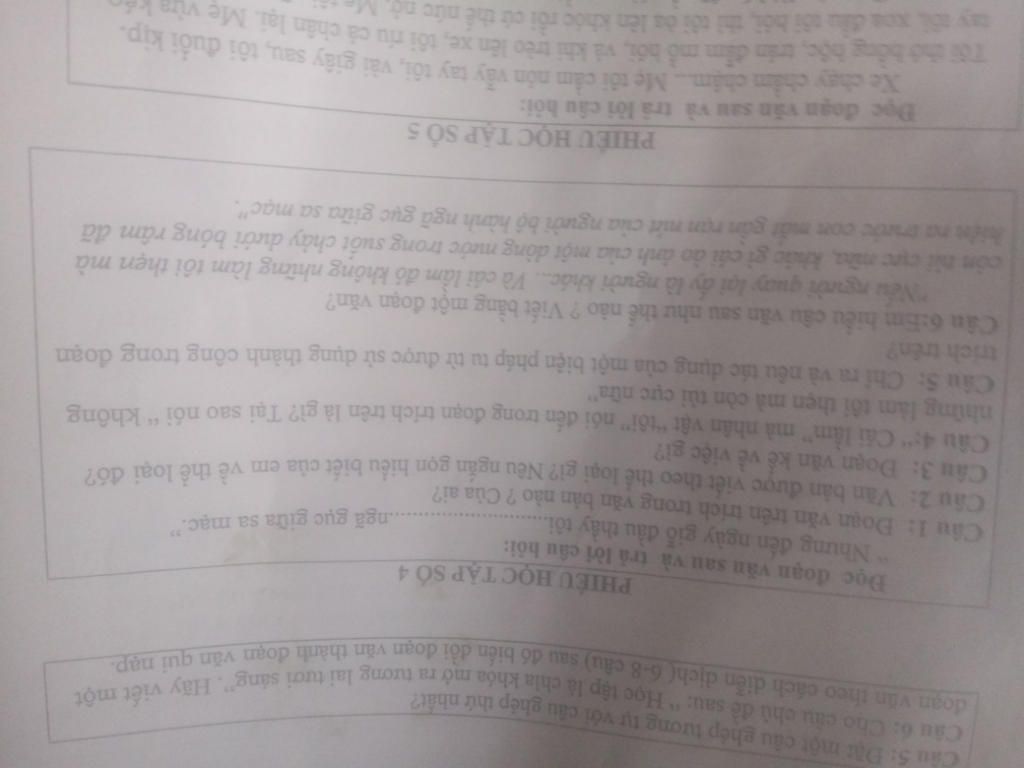 Câu 5: Đặt một câu ghép tương tự với câu ghép thứ nhất?
Câu 6: Cho câu chủ đề sau: “ Học tập là chìa khóa mở ra tương lai tươi sáng”. Hãy viết một
đoạn văn theo cách diễn dịch( 6-8 câu) sau đó biến đổi đoạn văn thành đoạn văn qui nạp.
PHIẾU HỌC TẬP SỐ 4
Đọc đoạn văn sau và trả lời câu hỏi:
“ Nhưng đến ngày giỗ đầu thầy tôi............................ngã gục giữa sa mạc.”
Câu 1: Đoạn văn trên trích trong văn bản nào ? Của ai?
Câu 2: Văn bản được viết theo thể loại gì? Nêu ngắn gọn hiểu biết của em về thể loại đó?
Câu 3: Đoạn văn kể về việc gì?
Câu 4:“ Cái lầm” mà nhân vật “tôi” nói đến trong đoạn trích trên là gì? Tại sao nói “ không
những làm tôi thẹn mà còn tủi cực nữa”
Câu 5: Chỉ ra và nêu tác dụng của một biện pháp tu từ được sử dụng thành công trong đoạn
trích trên?
Câu 6:Em hiểu câu văn sau như thế nào ? Viết bằng một đoạn văn?
“Nếu người quay lại ấy là người khác... Và cái lầm đó không những làm tôi thẹn mà
còn tủi cực nữa, khác gì cái ảo ảnh của một dòng nước trong suốt chảy dưới bóng râm đã
hiện ra trước con mắt gần rạn nứt của người bộ hành ngã gục giữa sa mạc”.
PHIẾU HỌC TẬP SỐ 5
Đọc đoạn văn sau và trả lời câu hỏi:
Xe chạy chầm chậm... Mẹ tôi cầm nón vẫy tay tôi, vài giây sau, tôi đuổi kịp.
Tôi thở hồng hộc, trán đẫm mồ hôi, và khi trèo lên xe, tôi ríu cả chân lại. Mẹ vừa kéo
tay tôi, xoa đầu tôi hỏi, thì tôi òa lên khóc rồi cứ thế nức nở. Mẹ tôi